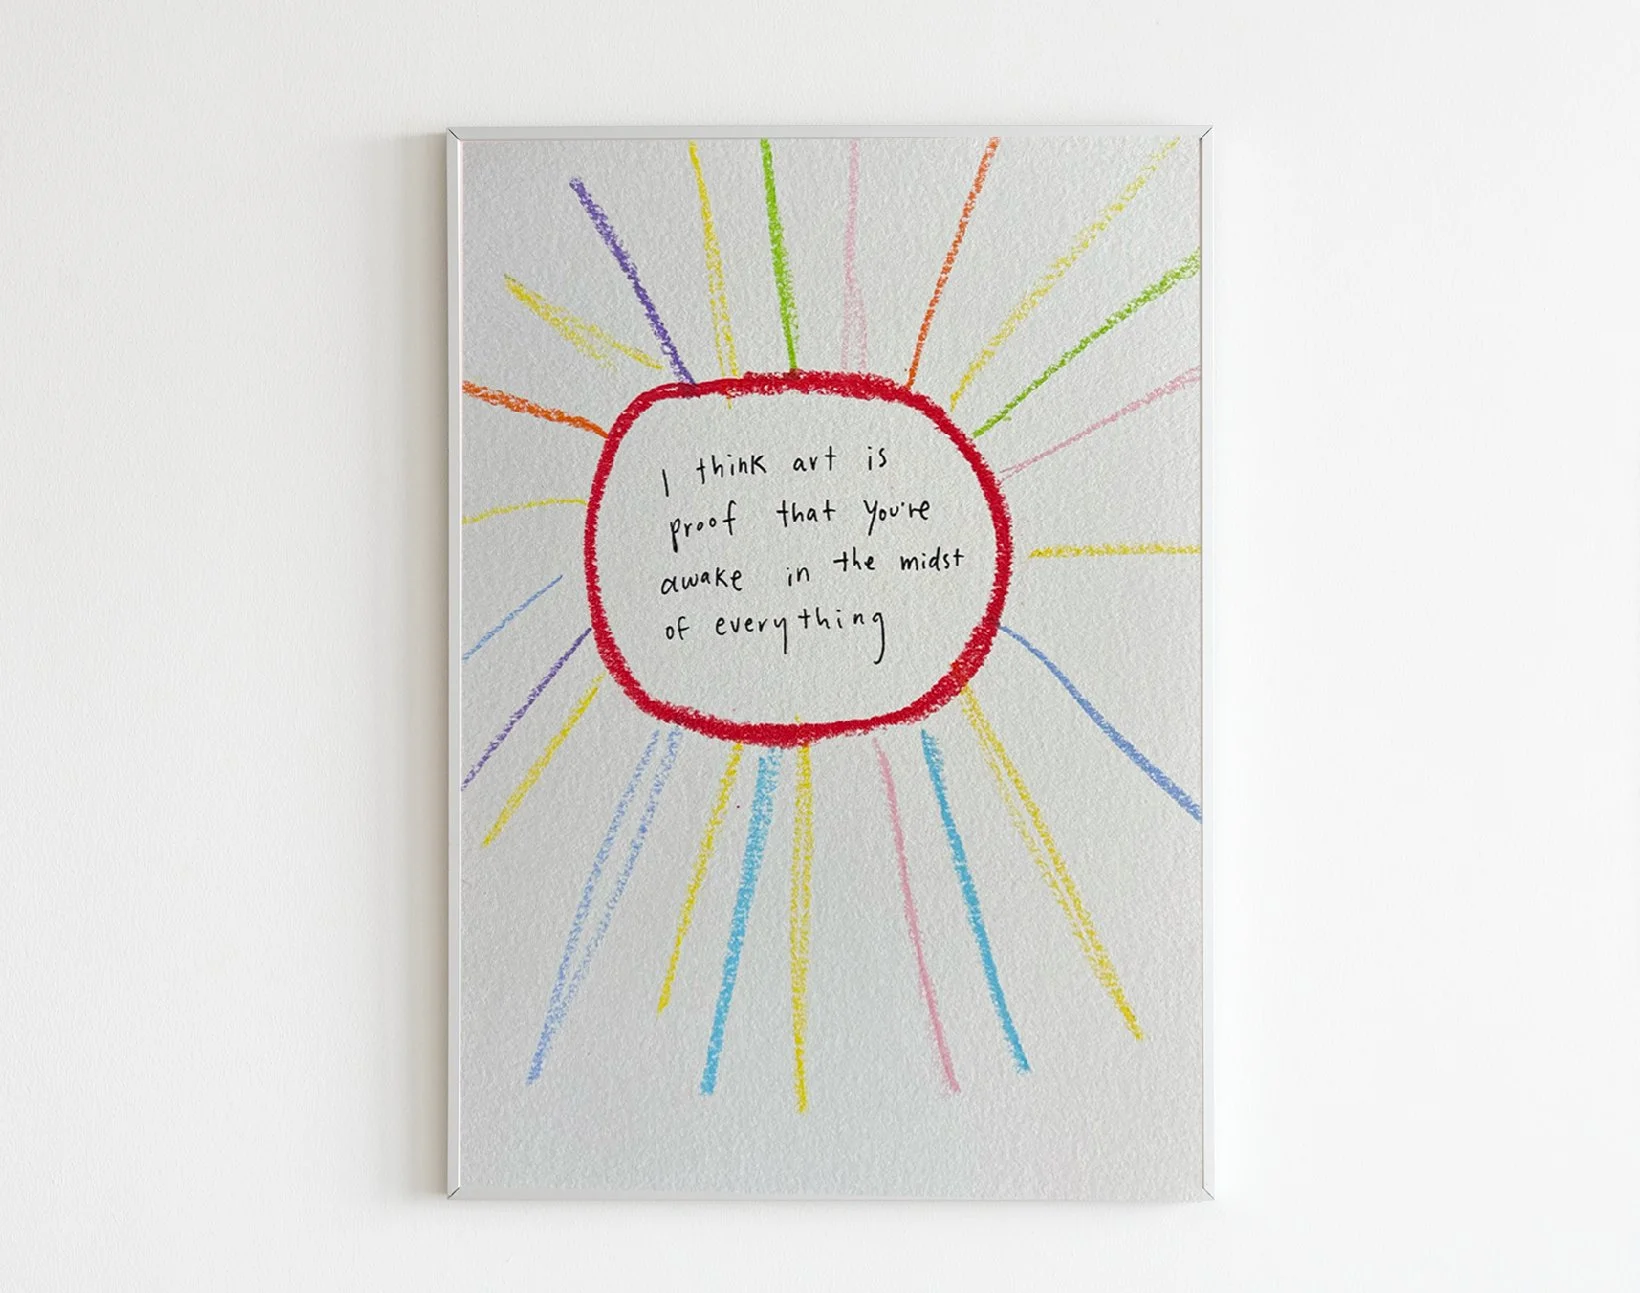 I think art is
proof that you're
awake in the midst
of everything